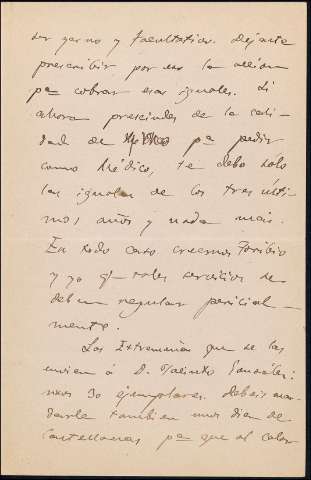 ser yerno y facultativo. Dejaste
prescribir por eso la acción
pª cobrar esas igualas. Si
ahora prescindes de la cali-
dad de pª pedir
como Médico, te debo solo
las igualas de los tres últi-
mos años y nada más.
En todo caso creemos Toribio
y yo q/ tales servicios se
deben regular pericial-
mente.
Las Extremeñas que se las
envien á D. Jacinto González:
unos 30 ejemplares. Debeis man-
darle tambien unos diez de
Castellanas pª que al calor